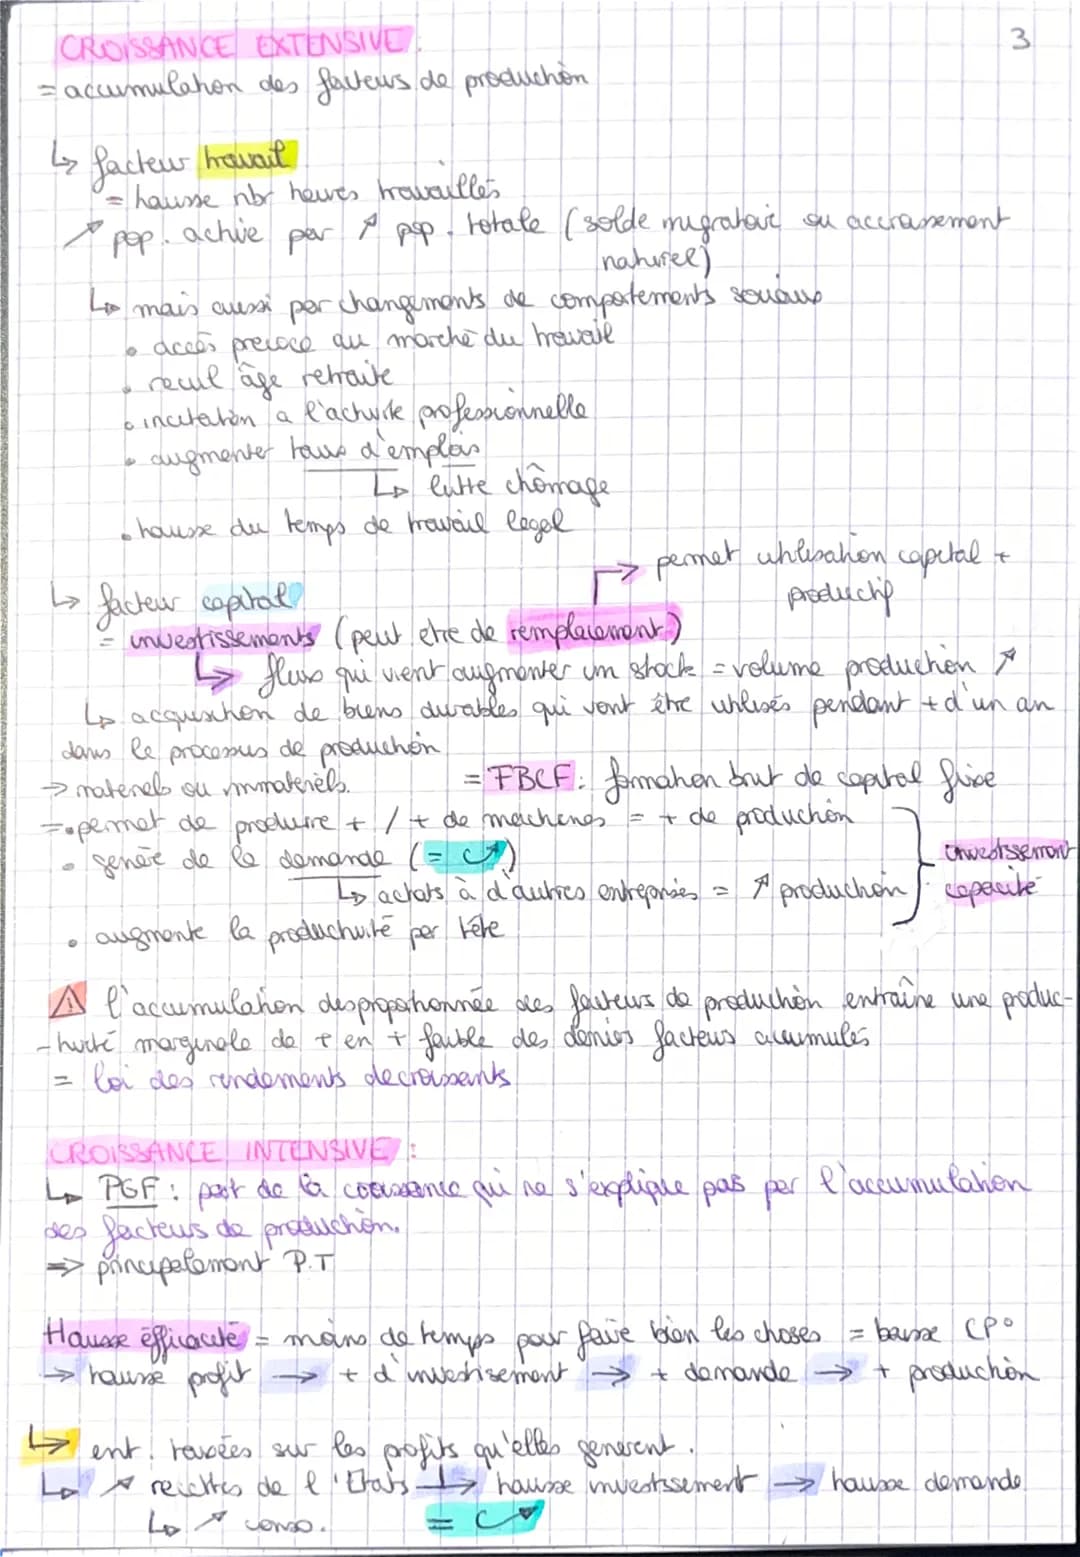 CROISSANCE EXTENSIVE :
3
= accumulation des facteurs de production
↳ facteur travail
= hausse nbr heures travaillés
↗ pop. active par ↗ pop. totale (solde migratoir ou accroissement
naturel)
↳ mais aussi par changements de comportements sociaux
• accès précoce au marché du travail
• recul âge retraite
• incitation a l'activité professionnelle
• augmenter taux d'emplois
↳ lutte chômage
• hausse du temps de travail légal
→ permet utilisation capital +
productif
↳ facteur capital
= investissements (peut etre de remplacement)
↳ flux qui vient augmenter un stock = volume production ↗
↳ acquisition de biens durables qui vont être utilisés pendant + d'un an
dans le processus de production
→ materiels ou immateriels.
= FBCF : formation brut de capital fixe
= • permet de produire + / + de machines = + de production
• genère de la demande (= C↗)
↳ achats à d'autres entreprises = ↗ production
investissement
capacité
• augmente la productivité par tête
⚠ l'accumulation disproportionnée des facteurs de production entraîne une produc-
-tivité marginale de + en + faible des derniers facteurs accumulés
= loi des rendements decroissants
CROISSANCE INTENSIVE :
↳ PGF : part de la croissance qui ne s'explique pas par l'accumulation
des facteurs de production.
=> principalement P.T
Hausse éfficacité = moins de temps pour faire bien les choses = baisse CP°
→ hausse profit → + d'investisement → + demande → + production
↳ ent. taxées sur les profits qu'elles generent.
↳ ↗ recettes de l'Etats → hausse investissement → hausse demande
↳ ↗ conso.
= C↗